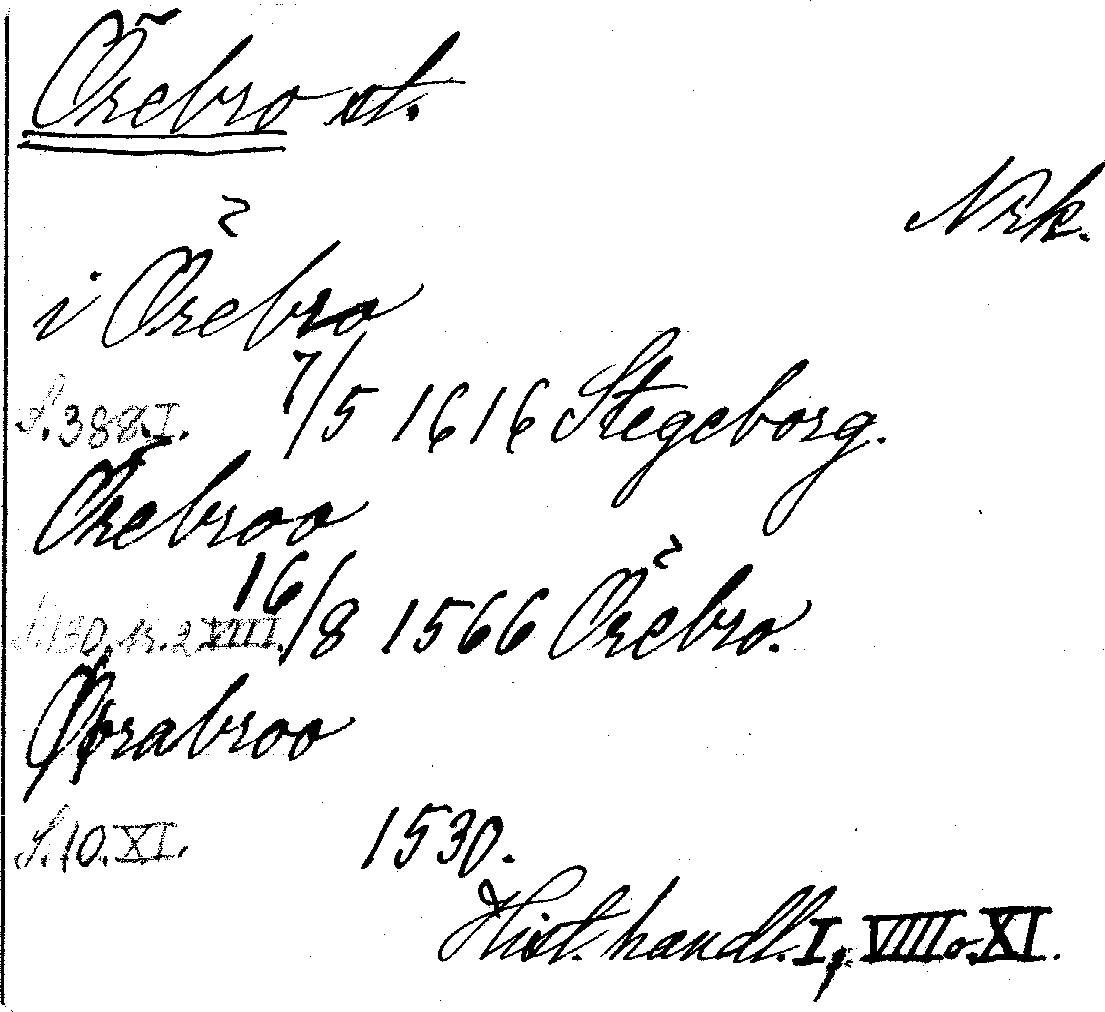 Örebro st.
Nrk.
i Örebro
S. 388. I. 7/5 1616 Stegeborg.
Örebroo
S. 130. nr. 2 VIII. 16/8 1566 Örebro.
Ørabroo
S. 10. XI. 1530.
Hist. handl. I, VIII o. XI.